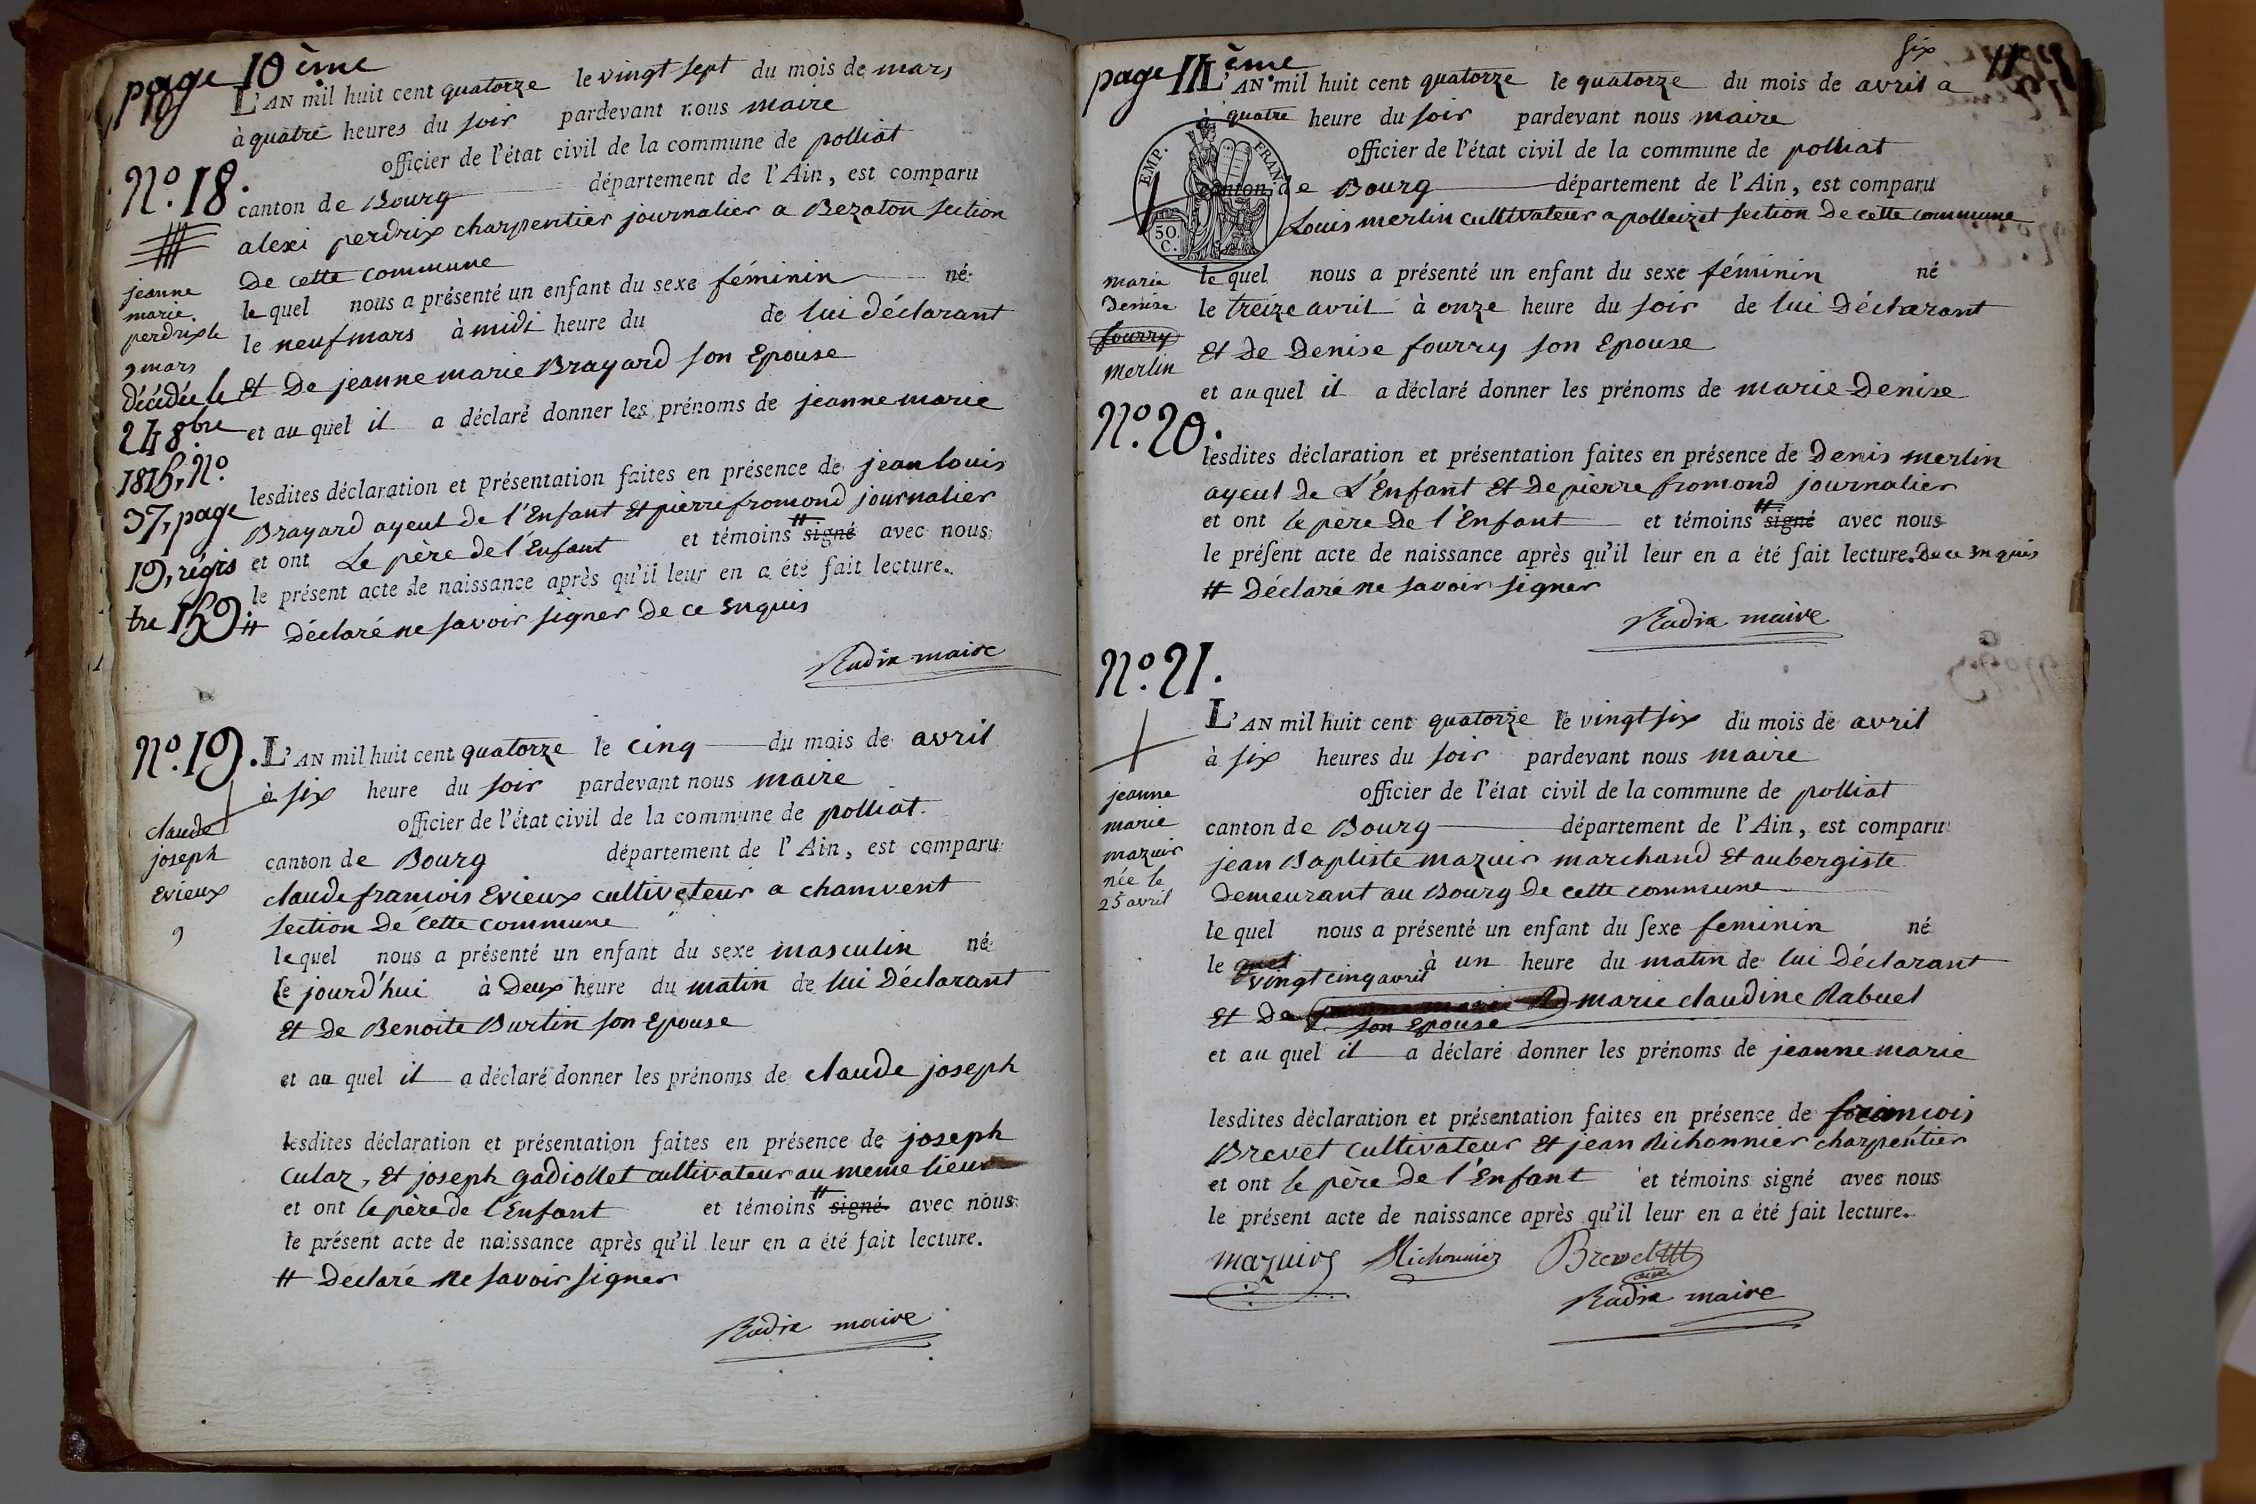 page 10ème
L'AN mil huit cent quatorze le vingt sept du mois de mars
à quatre heures du soir pardevant nous maire
officier de l'état civil de la commune de polliat
N.º 18.
canton de Bourg département de l'Ain, est comparu
alexi perdrix charpentier journalier a Bezaton section
De cette commune
jeanne
marie
perdrix le
9 mars
décédée le
24 8bre
1815, Nº
37, page
19, régis
tre 159.
le quel nous a présenté un enfant du sexe féminin né
le neuf mars à midi heure du de lui déclarant
et De jeanne marie Brayard son Epouse
et au quel il a déclaré donner les prénoms de jeanne marie
lesdites déclaration et présentation faites en présence de jean louis
Brayard ayeul de l'Enfant Et pierre fromond journalier
et ont Le père de l'Enfant et témoins # signé avec nous
le présent acte de naissance après qu'il leur en a été fait lecture.
# Déclaré ne savoir signer de ce Enquis
Rudix maire
N.º 19.
L'AN mil huit cent quatorze le cinq du mois de avril
à six heure du soir pardevant nous maire
officier de l'état civil de la commune de polliat
claude
joseph
Evieux
9
canton de Bourg département de l'Ain, est comparu
claude francois Evieux cultivateur a chamvent
section De Cette commune
le quel nous a présenté un enfant du sexe masculin né
le jourd'hui à Deux heure du matin de lui Déclarant
Et de Benoite Burtin son Epouse
et au quel il a déclaré donner les prénoms de claude joseph
lesdites déclaration et présentation faites en présence de joseph
Cularz, Et joseph gadiollet cultivateur au meme lieu
et ont le père de l'Enfant et témoins # signé avec nous
le présent acte de naissance après qu'il leur en a été fait lecture.
# Déclaré ne savoir signer
Rudix maire
page 11ème
six
11
L'AN mil huit cent quatorze le quatorze du mois de avril a
à quatre heure du soir pardevant nous maire
officier de l'état civil de la commune de polliat
EMP. FRAN
50
C.
canton de Bourg département de l'Ain, est comparu
Louis merlin cultivateur a polleizet section De cette commune
marie
Denise
fourry
merlin
le quel nous a présenté un enfant du sexe féminin né
le treize avril à onze heure du soir de lui Déclarant
Et de Denise fourry son Epouse
et au quel il a déclaré donner les prénoms de marie Denise
N.º 20.
lesdites déclaration et présentation faites en présence de Denis merlin
ayeul de L'Enfant Et De pierre fromond journalier
et ont le père De l'Enfant et témoins # signé avec nous
le présent acte de naissance après qu'il leur en a été fait lecture. De ce Enquis
# Déclaré ne savoir signer
Rudix maire
N.º 21.
L'AN mil huit cent quatorze le vingt six du mois de avril
à six heures du soir pardevant nous maire
officier de l'état civil de la commune de polliat
jeanne
marie
mazuir
née le
25 avril
canton de Bourg département de l'Ain, est comparu
jean Baptiste mazuir marchand Et aubergiste
Demeurant au Bourg De cette commune
le quel nous a présenté un enfant du sexe feminin né
le quel à un heure du matin de lui Déclarant
vingt cinq avril
Et De marie claudine Rabuel
son Epouse
et au quel il a déclaré donner les prénoms de jeanne marie
lesdites déclaration et présentation faites en présence de francois
Brevet cultivateur Et jean Richonnier charpentier
et ont le père De l'Enfant et témoins signé avec nous
le présent acte de naissance après qu'il leur en a été fait lecture.
mazuir Richonnier Brevet
Rudix maire